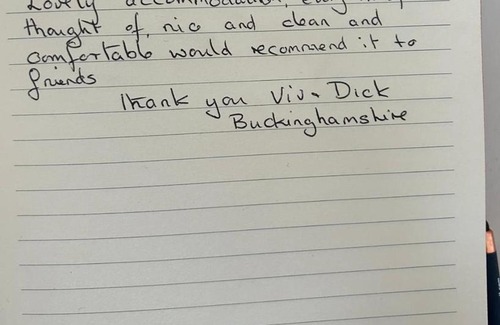 Lovely accommodation,
thought of, nic and clean and
comfortable would recommend it to
friends
Thank you Viv. Dick
Buckinghamshire